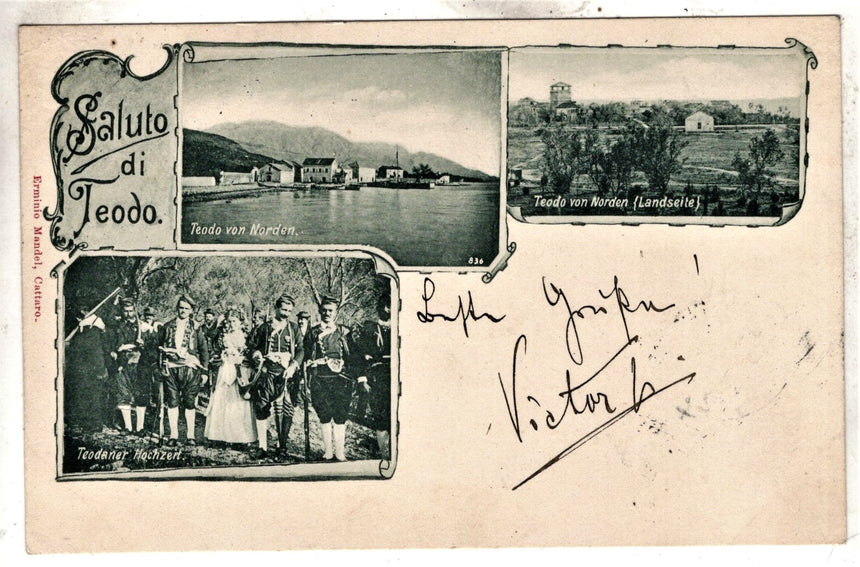 Saluto
di
Teodo.
Teodo von Norden.
836
Teodo von Norden (Landseite)
Erminio Mandel, Cattaro.
Beste Grüße!
Victor
Teodaner Hochzeit.